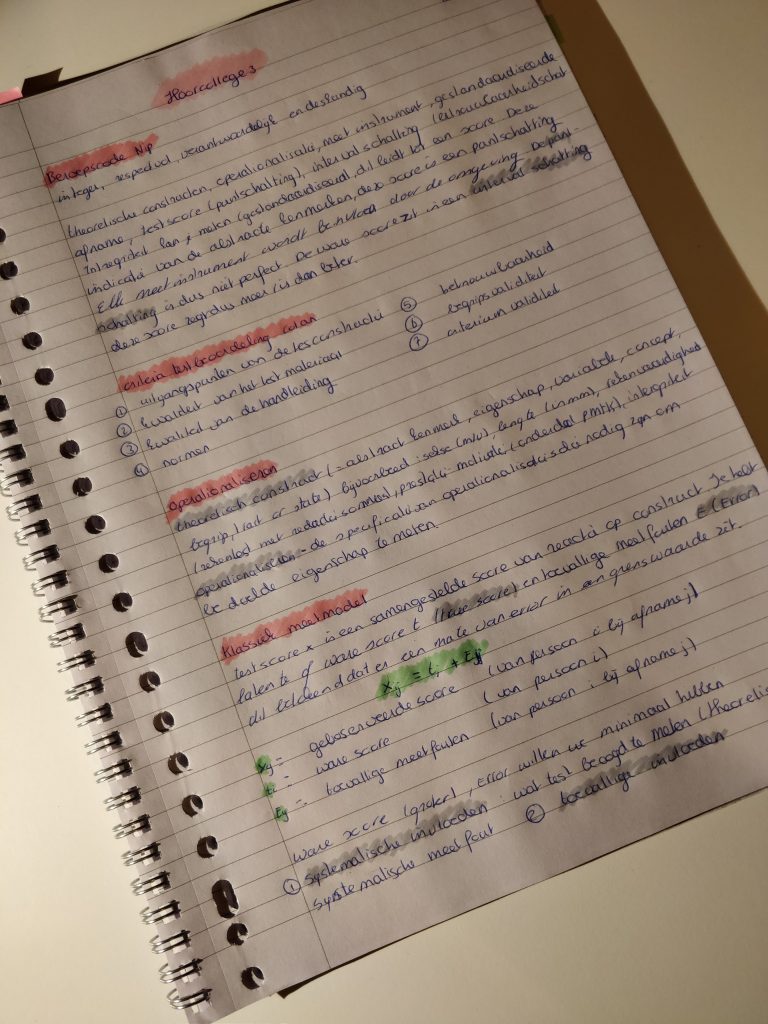 Hoorcollege 3
Beroepscode Nip
integer, respectvol, verantwoordelijk en deskundig
theoretische constructen, operationalisatie, meet instrument, gestandaardiseerde
afname, testscore (puntschatting), interval schatting (betrouwbaarheidschat
meten (gestandaardiseerd, dit leidt tot een score. Deze
indicatie van de abstracte kenmerken, deze score is een puntschatting
Elk meet instrument wordt door de omgeving. De punt-
schatting is dus niet perfect. De ware score zit in een interval schatting
deze score zegt dus meer / is dan beter.
criteria testbeoordeling cotan
① uitgangspunten van de testconstructie
② kwaliteit van het test materiaal
③ kwaliteit van de handleiding
④ normen
⑤ betrouwbaarheid
⑥ begripsvaliditeit
⑦ criterium validiteit
operationaliseren
theoretisch construct (= abstract kenmerk, eigenschap, variabele, concept,
begrip, trait or state) bijvoorbeeld: sekse (m/v), lengte (in mm), rekenvaardigheid
(rekentest met redactiesommen), prestatie-motivatie, (onderdeel pmt-k), integriteit
operationaliseren - de specificatie van operationalisatie is dus nodig zijn om
bedoelde eigenschap te meten.
Klassiek meetmodel
testscore x is een samengestelde score van reactie op construct. Je hebt
latente of ware score t (true score) en toevallige meetfouten E (Error)
dit betekend dat er een mate van error in een grenswaarde zit.
xij = ti + Eij
xij = geboserveerde score (van persoon i bij afname j)
ti = ware score (van persoon i)
Eij = toevallige meetfouten (van persoon i bij afname j)
ware score (groter), Error willen we minimaal hebben
① systematische invloeden: wat test beoogd te meten (theoretis
systematische meetfout ② toevallige invloeden